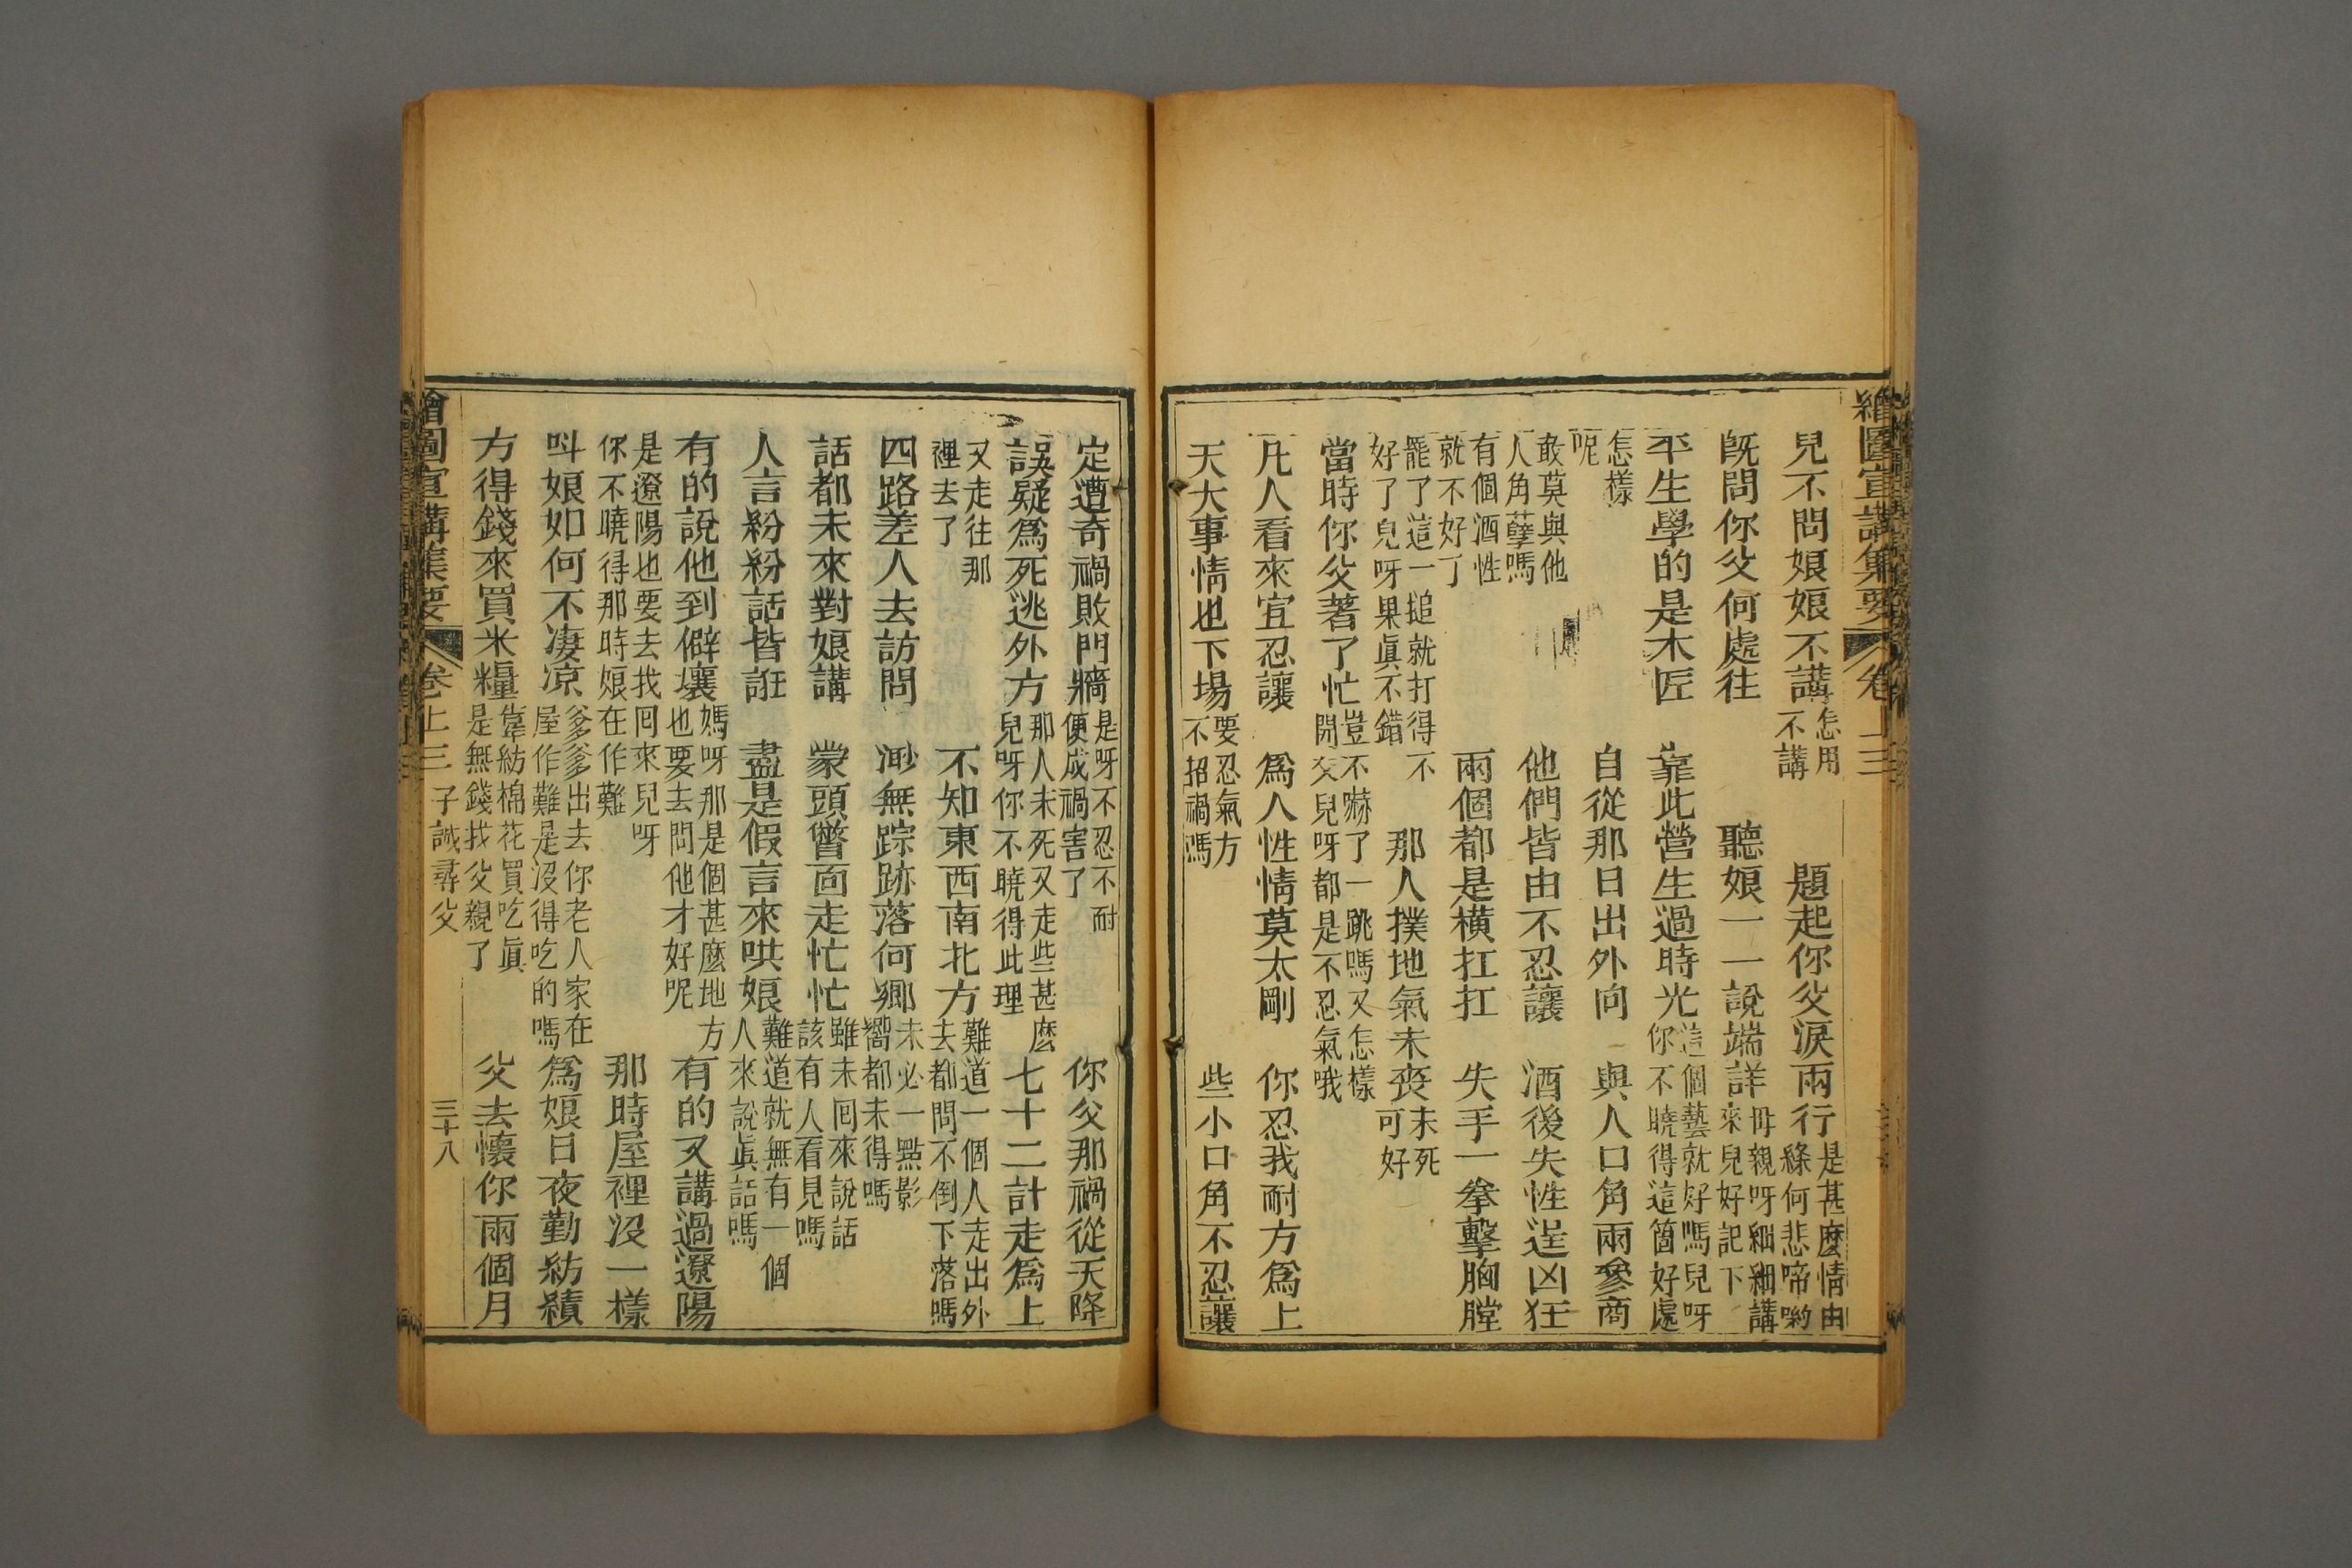 繪圖宣講集要 卷上三
兒不問娘娘不講怎用不講 題起你父淚兩行是甚麼情由緣何悲啼喲
旣問你父何處往 聽娘一一說端詳毋親呀細細講來兒好記下
平生學的是木匠 靠此營生過時光這個藝就好嗎兒呀你不曉得這箇好處
怎樣呢 自從那日出外向 與人口角兩參商
敢莫與他人角孽嗎 他們皆由不忍讓 酒後失性逞凶狂
有個酒性就不好了 兩個都是橫扛扛 失手一拳擊胸膛
罷了這一搥就打得不好了兒呀果眞不錯 那人撲地氣未喪未死可好
當時你父著了忙豈不嚇了一跳嗎又怎樣開交兒呀都是不忍氣哦
凡人看來宜忍讓 爲人性情莫太剛 你忍我耐方爲上
天大事情也下場要忍氣方不招禍嗎 些小口角不忍讓
定遭奇禍敗門牆是呀不忍不耐便成禍害了 你父那禍從天降
誤疑爲死逃外方那人未死又走些甚麼兒呀你不曉得此理 七十二計走爲上
又走往那裡去了 不知東西南北方難道一個人走出外去都問不倒下落嗎
四路差人去訪問 渺無踪跡落何鄉未必一點影嚮都未得嗎
話都未來對娘講 蒙頭瞥面走忙忙雖未囘來說話該有人看見嗎
人言紛紛話皆誑 盡是假言來哄娘難道就無有一個人來說眞話嗎
有的說他到僻壤媽呀那是個甚麼地方也要去問他才好呢 有的又講過遼陽
是遼陽也要去找囘來兒呀你不曉得那時娘在作難 那時屋裡沒一樣
呌娘如何不凄凉爹爹出去你老人家在屋作難是沒得吃的嗎 爲娘日夜勤紡績
方得錢來買米糧靠紡棉花買吃眞是無錢找父親了 父去懷你兩個月
繪圖宣講集要 卷上三 子誠尋父 三十八